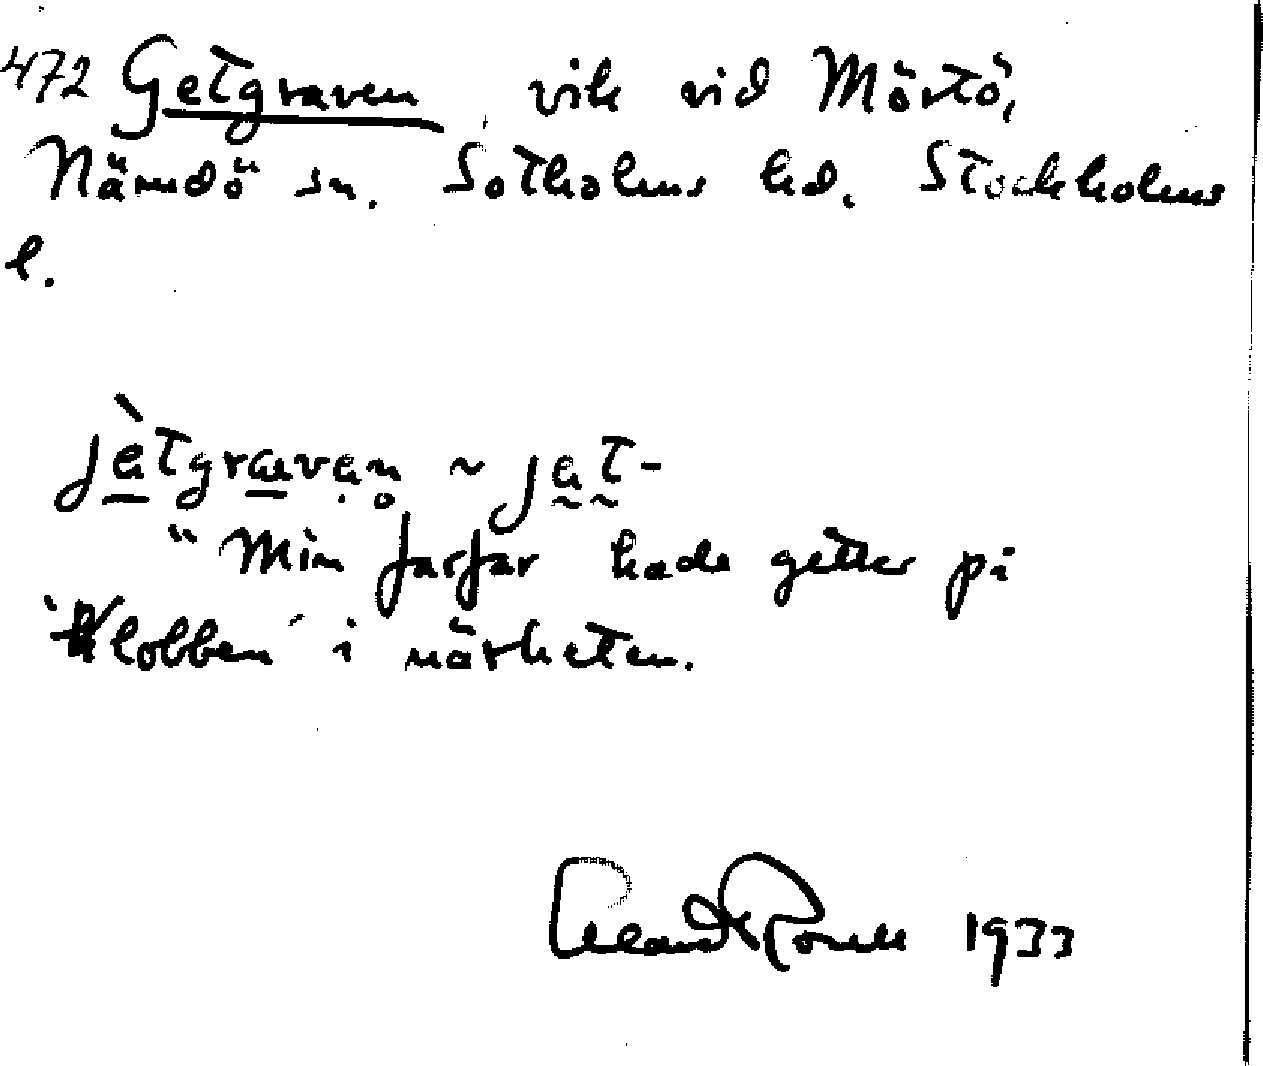 472 Getgraven vik vid Mörtö,
Nämdö sn. Sotholms hd. Stockholms
l.
jètgrav̱ạn̥ ~ jet-
"Min farfar hade getter på
'Klobben' i närheten.
1933